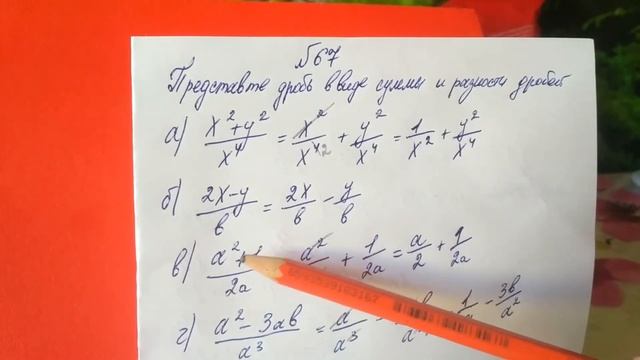 №67
Представте дробь в виде суммы и разности дробей
а) (x²+y²)/x⁴ = x²/x⁴ ² + y²/x⁴ = 1/x² + y²/x⁴
б) (2x-y)/b = 2x/b - y/b
в) a²+ /2a a²/ + 1/2a = a/2 + 1/2a
г) (a²-3ab)/a³ = a/a³ - 3b/a²